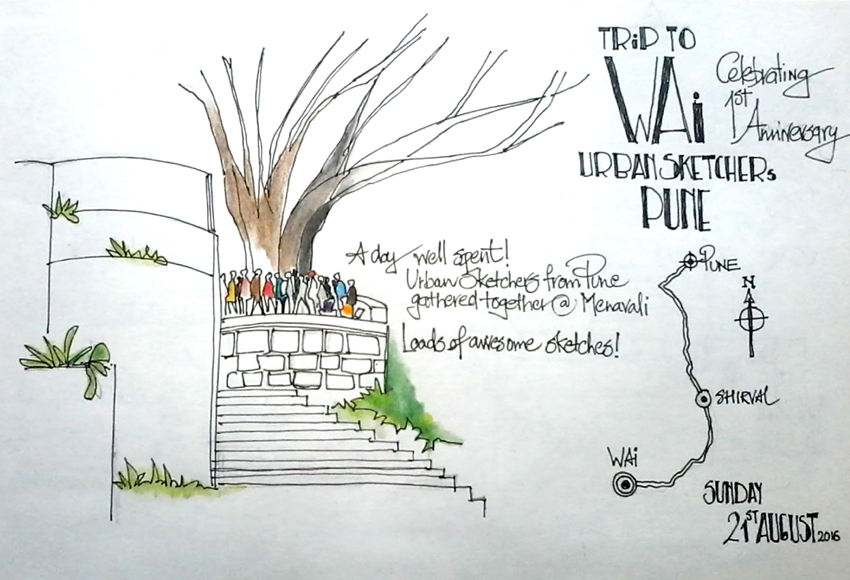 TRiP TO
WAi
URBAN SKETCHERS
PUNE
Celebrating
1st
Anniversary
A day well spent!
Urban Sketchers from Pune
gathered together @ Menavali
Loads of awesome sketches!
PUNE
N
SHIRVAL
WAi
SUNDAY
21ST AUGUST 2016